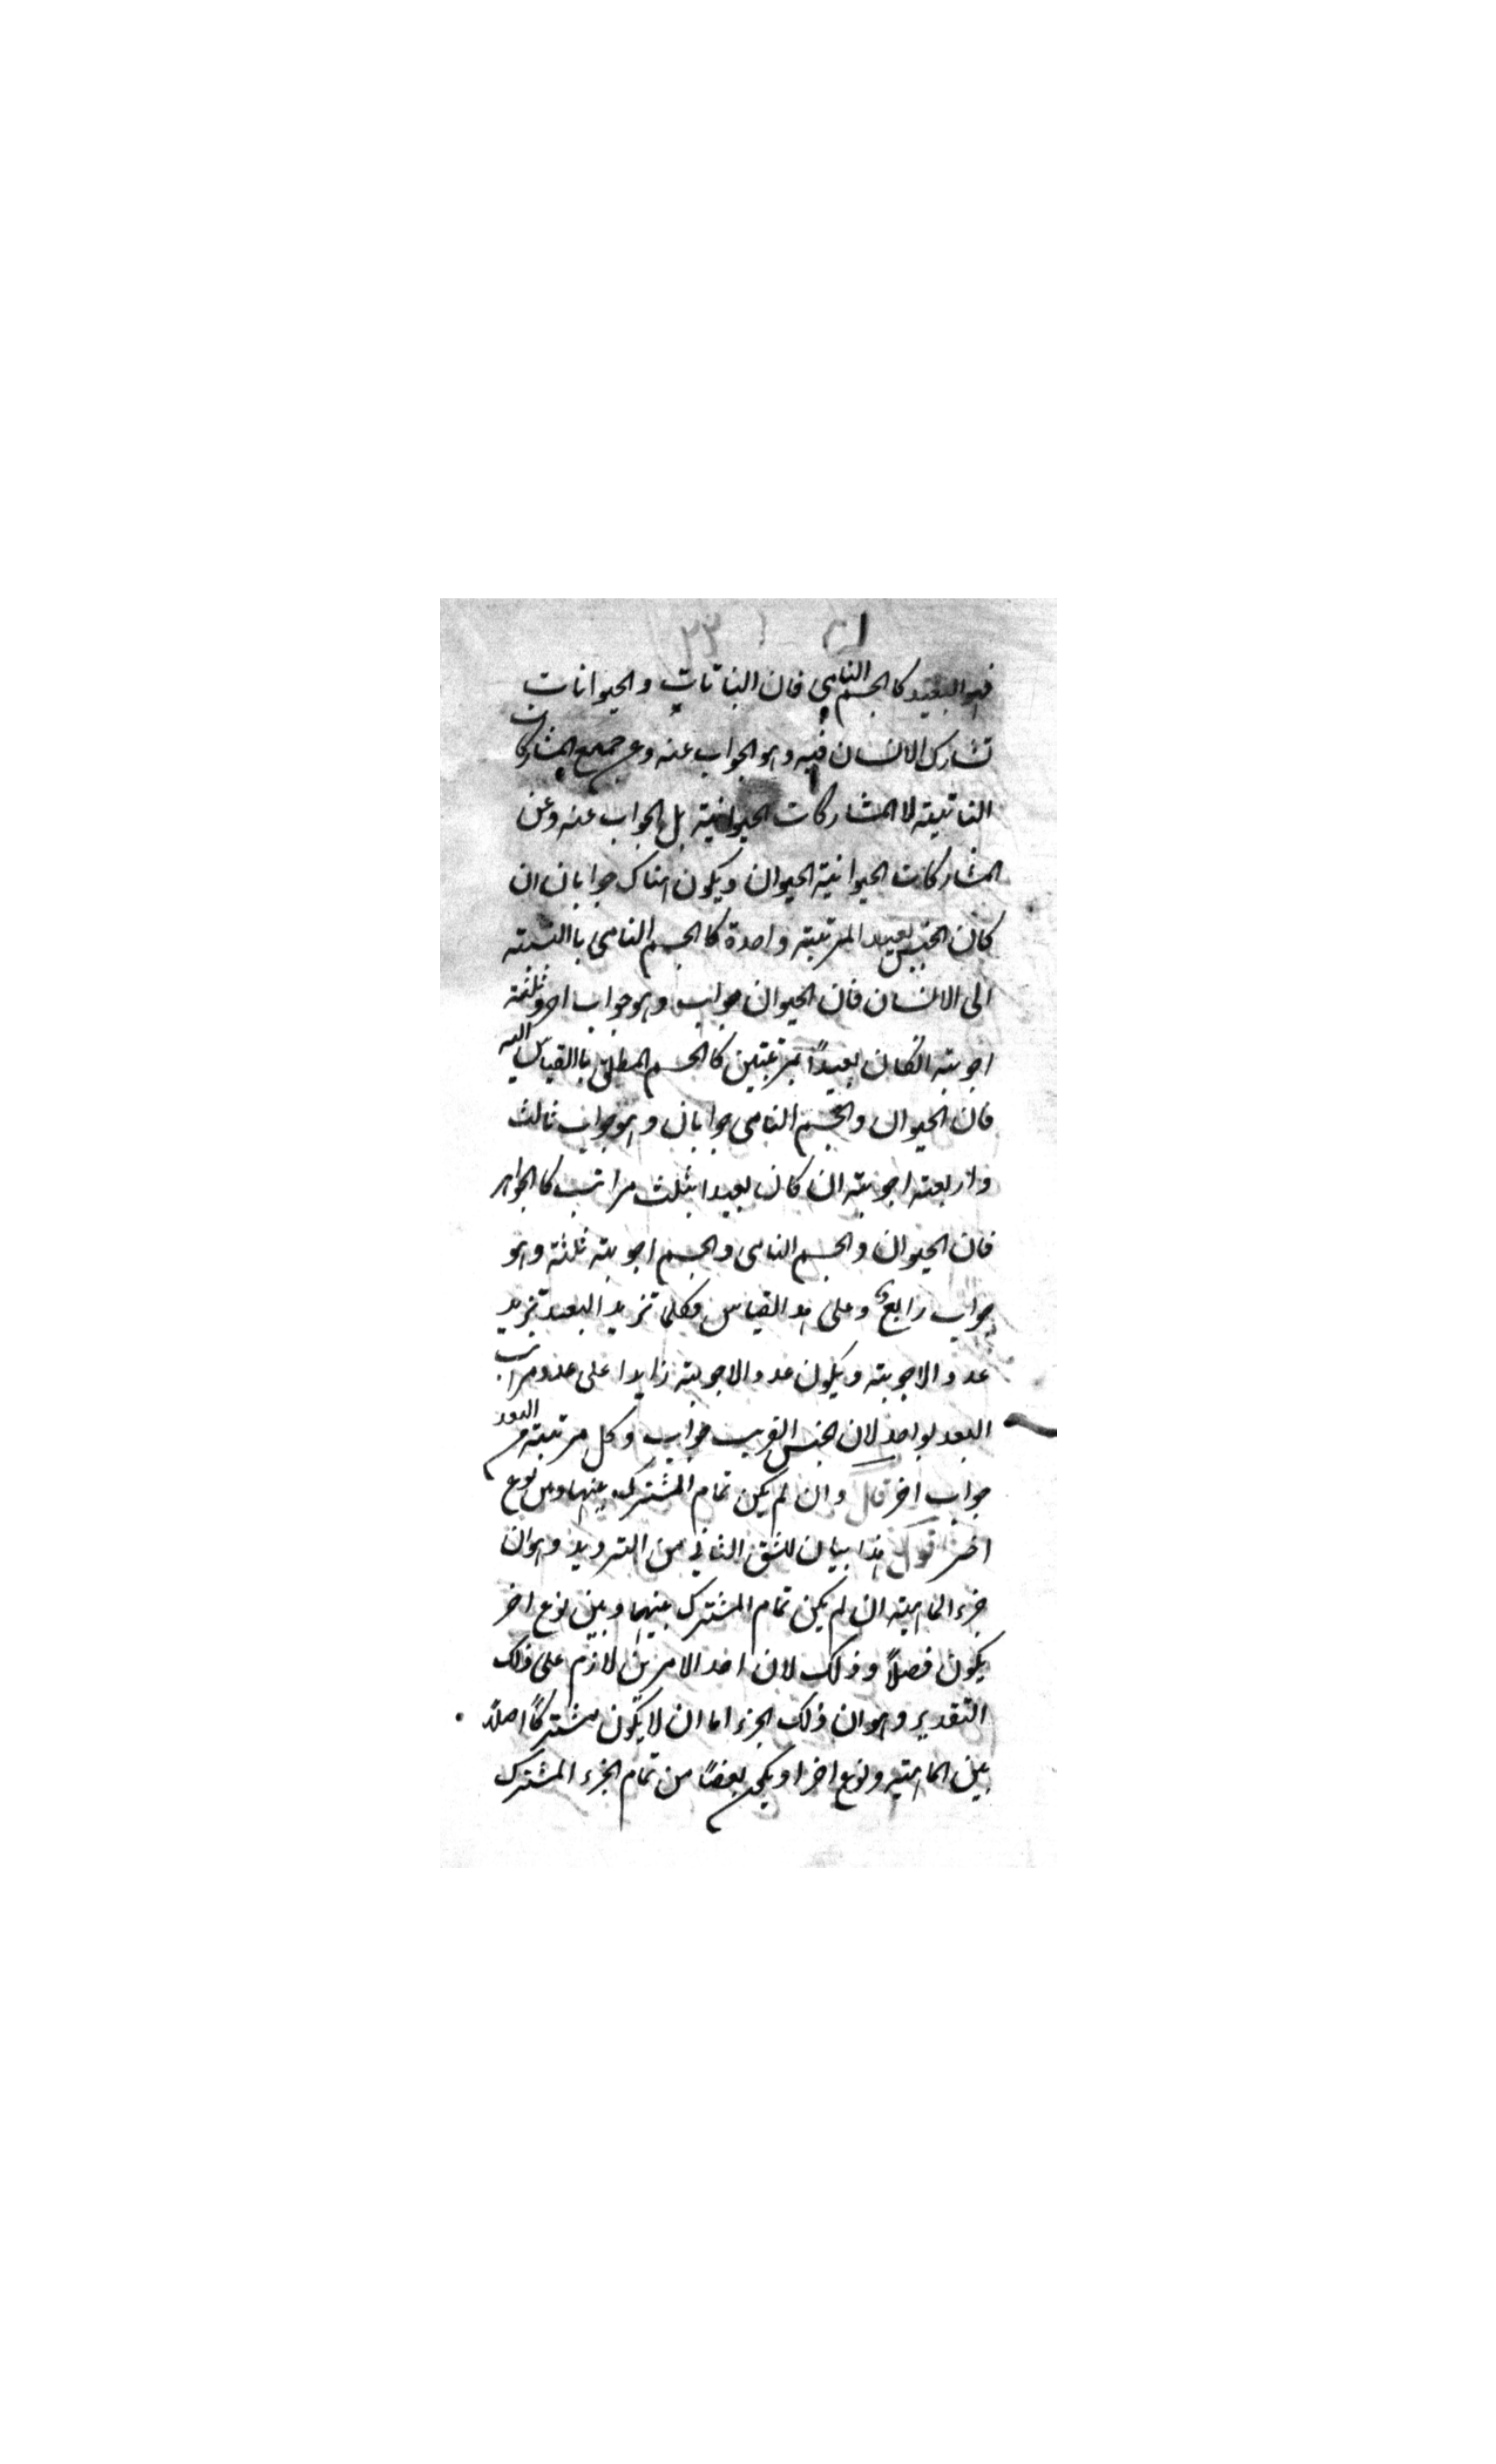 ٣٣
فهو البعيد كالجسم النامي فان النباتات والحيوانات
تشارك الانسان فيه وهو الجواب عنه وعن جميع المشاركات
النباتية لا المشاركات الحيوانية بل الجواب عنه وعن
المشاركات الحيوانية الحيوان ويكون هناك جوابان ان
كان الجنس بعيدا لمرتبة واحدة كالجسم النامي باالنسبة
الى الانسان فان الحيوان جواب وهو جواب اخر وثلثة
اجوبة انكان بعيدًا بمرتبتين كالجسم المطلق باالقياس اليه
فان الحيوان والجسم النامي جوابان وهو جواب ثالث
واربعة اجوبة ان كان بعيدا بثلث مراتب كالجواهر
فان الحيوان والجسم النامي والجسم اجوبة ثلثة وهو
جواب رابع وعلى هذا القياس فكلما تزيد البعد تزيد
عدد الاجوبة ويكون عدد الاجوبة زايدا على عدد مراتب
البعد بواحد لان الجنس القريب جواب وكل مرتبة من البعد
جواب اخر قال وان لم يكن تمام المشترك بينها وبين نوع
اخر اقول هذا بيان للشق الثاني من الترديد وهو ان
جزء الماهية ان لم يكن تمام المشترك بينها وبين نوع اخر
يكون فصلًا وذلك لان احد الامرين لازم على ذلك
التقدير وهو ان ذلك الجزء اما ان لا يكون مشتركًا اصلًا
بين الماهية ونوع اخر او يكون بعضًا من تمام الجزء المشترك